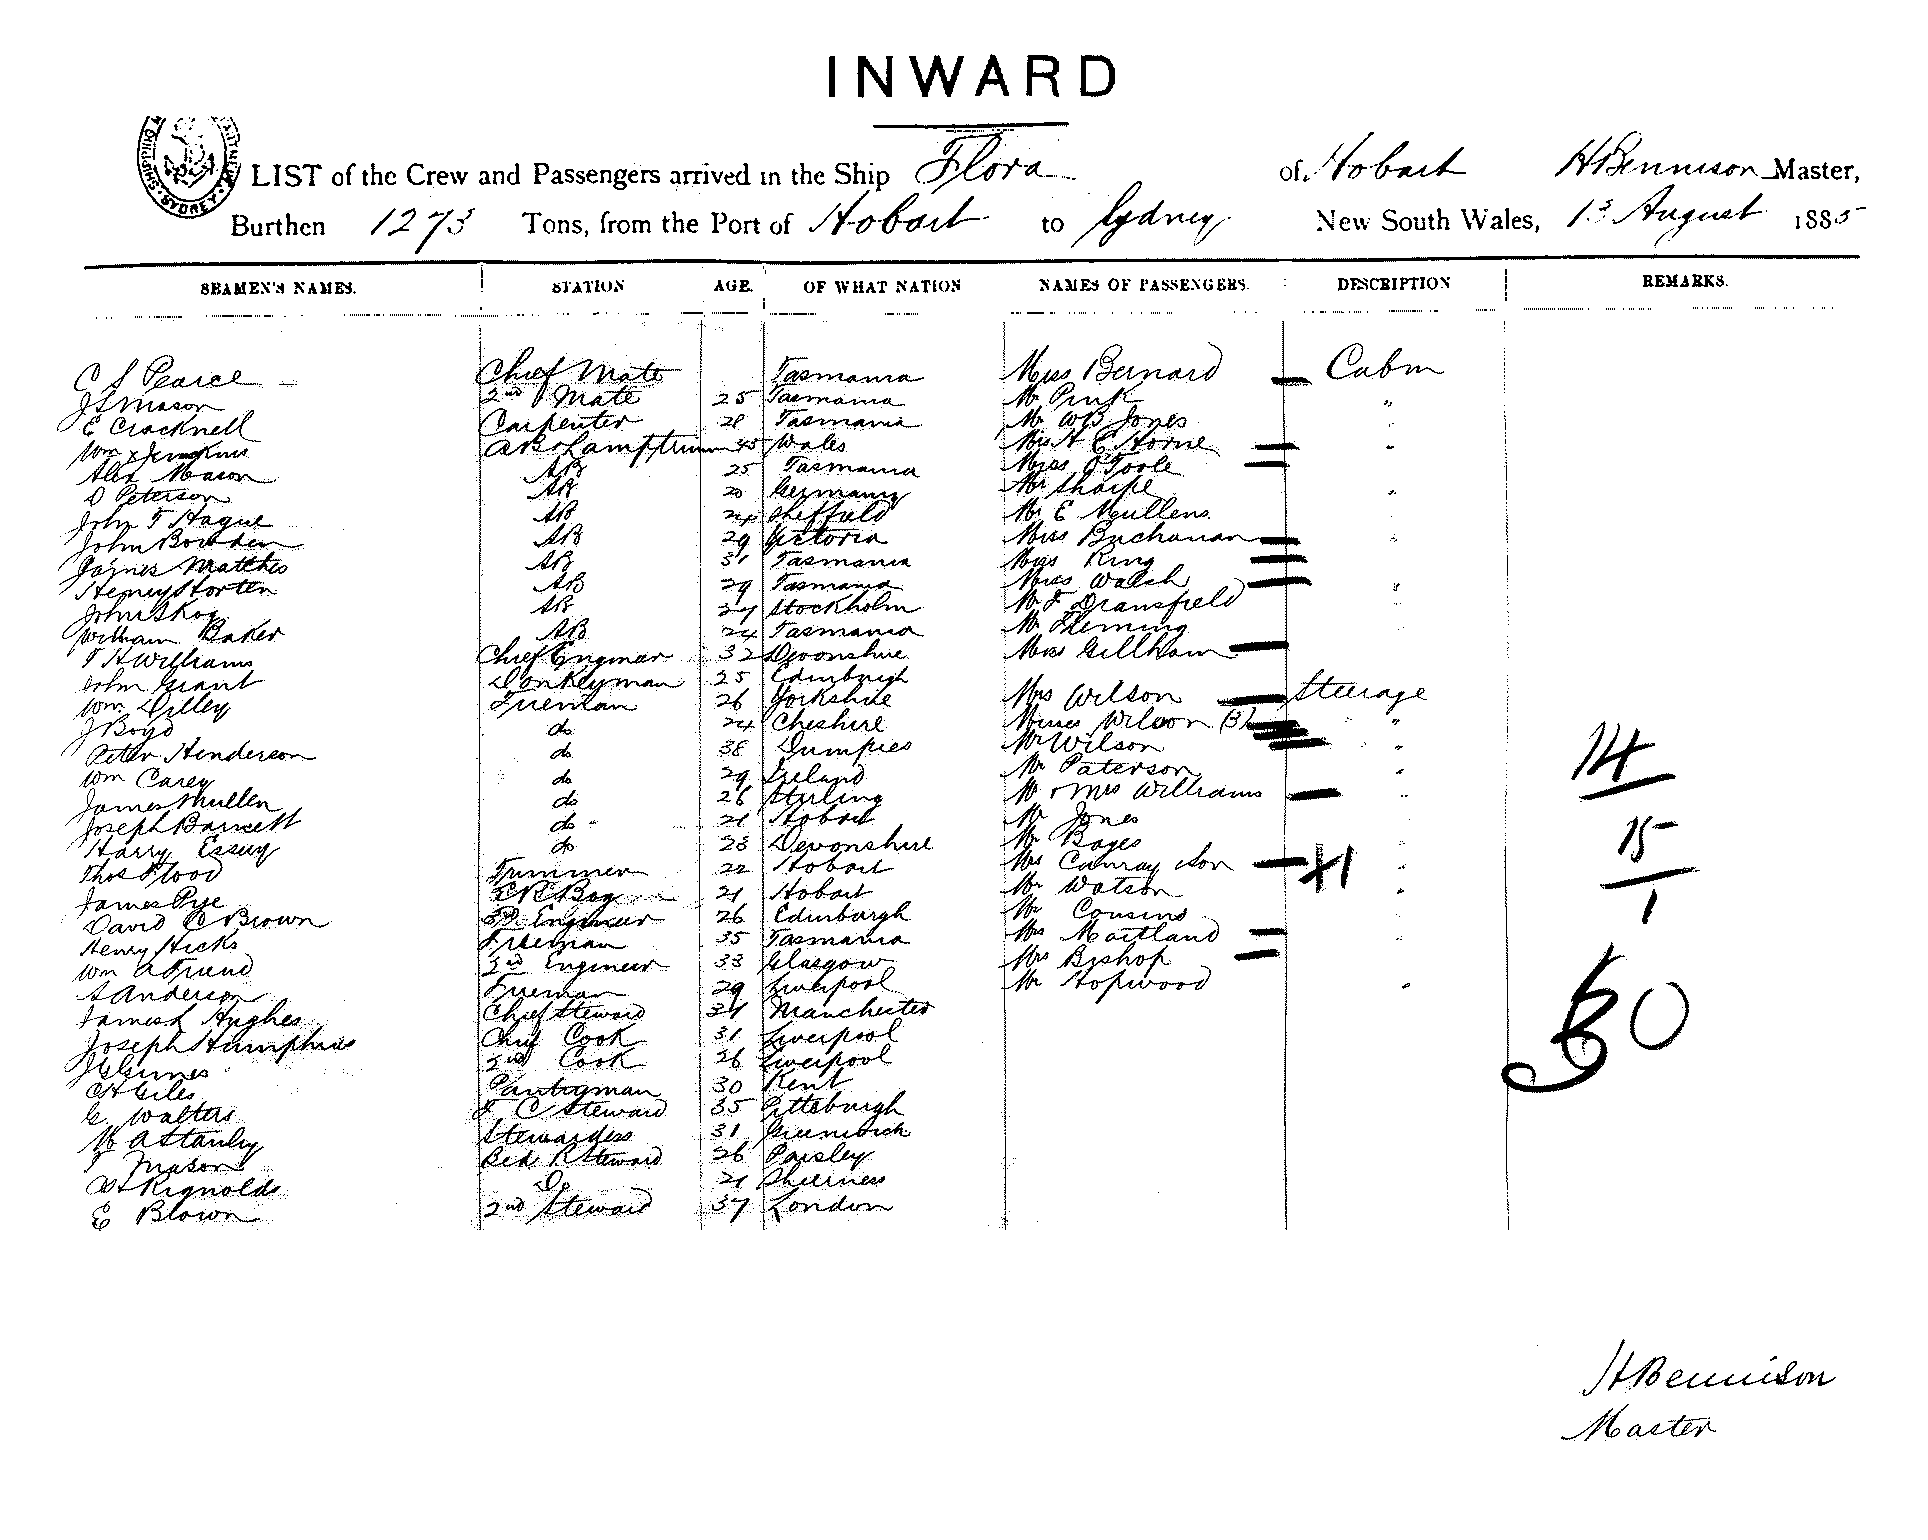 INWARD
LIST of the Crew and Passengers arrived in the Ship Flora of Hobart H Bennison Master,
Burthen 1273 Tons, from the Port of Hobart to Sydney New South Wales, 13 August 1885
SEAMEN'S NAMES. STATION AGE. OF WHAT NATION NAMES OF PASSENGERS. DESCRIPTION REMARKS.
C S Pearce Chief Mate Tasmania Miss Bernard Cabin
J S Mason 2nd Mate 25 Tasmania Mr Pink "
E Cracknell Carpenter 28 Tasmania Mr W B Jones
Wm Jenkins AB & Lamptrimmer 45 Wales Mrs H E Horne "
Alex Mason AB 25 Tasmania Miss O'Toole
D Peterson AB 20 Germany Mr Sharpe "
John T Hague AB 24 Sheffield Mr E Mullens
John Bowden AB 29 Victoria Miss Buchanan "
James Matthes AB 31 Tasmania Miss King
Henry Horten AB 29 Tasmania Miss Walch "
John Skog AB 27 Stockholm Mr F Dransfield "
William Baker AB 24 Tasmania Mr Fleming
T H Williams Chief Engineer 32 Devonshire Mrs Gillham "
John Grant Donkeyman 25 Edinburgh
Wm Dilley Fireman 26 Yorkshire Mrs Wilson Steerage
J Boyd do 24 Cheshire Misses Wilson (3) "
Peter Henderson do 38 Dumfries Mr Wilson "
Wm Carey do 29 Ireland Mr Paterson "
James Mullen do 26 Stirling Mr & Mrs Williams "
Joseph Barnett do 21 Hobart Mr Jones
Harry Essey do 23 Devonshire Mr Bages
Thos Flood Trimmer 22 Hobart Mrs Conray & son +1 "
James Pye Boy 21 Hobart Mr Watson "
David C Brown 3rd Engineer 26 Edinburgh Mr Cousins
Henry Hicks Fireman 35 Tasmania Mrs Maitland "
Wm A Friend 2nd Engineer 33 Glasgow Mrs Bishop
A Anderson Fireman 29 Liverpool Mr Hopwood "
James L Hughes Chief Steward 34 Manchester
Joseph Humphries Chief Cook 31 Liverpool
2nd Cook 26 Liverpool
C H Giles Pantryman 30 Kent
G Walters F C Steward 35 Pittsburgh
M A Stanley Stewardess 31 Greenwich
T Mason Bed R Steward 26 Paisley
Rignolds Do 21 Sheerness
E Blown 2nd Steward 37 London
14
15
1
30
H Bennison
Master